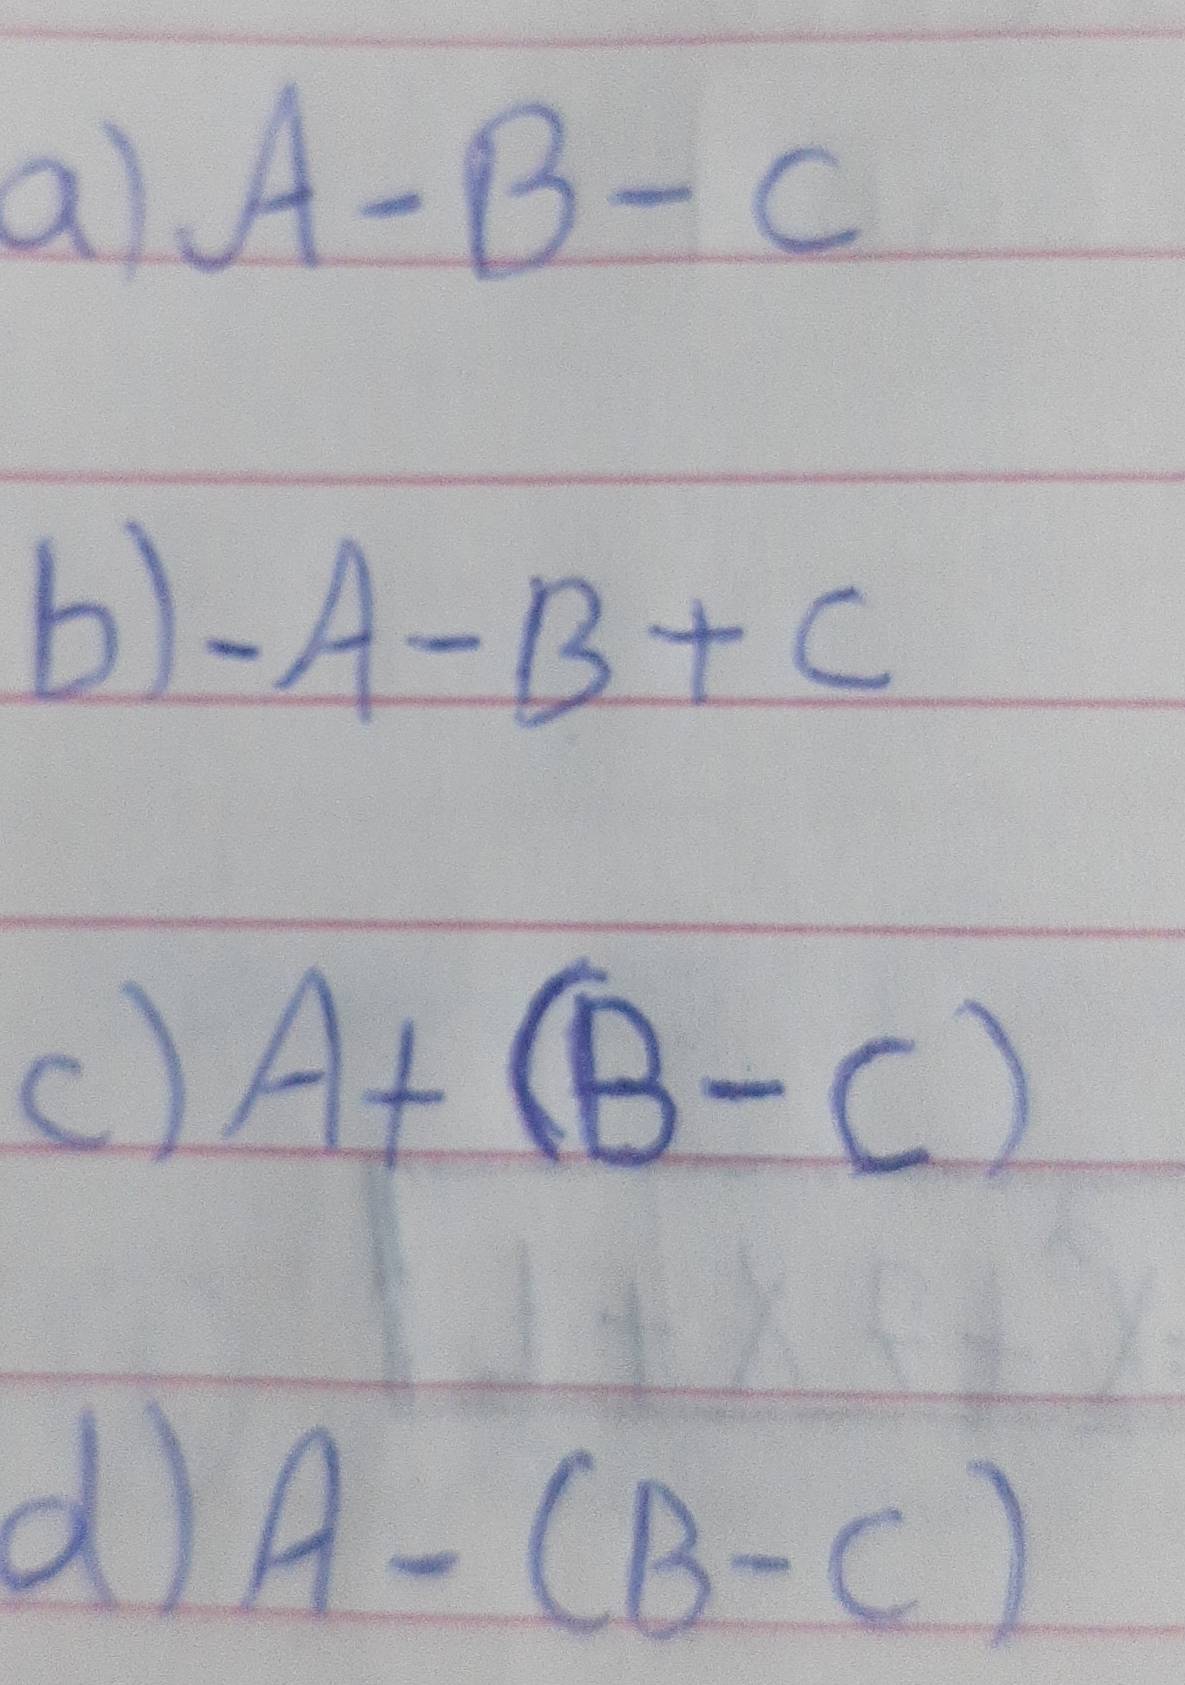 a) A - B - C
b) - A - B + C
c) A + (B - C)
d) A - (B - C)